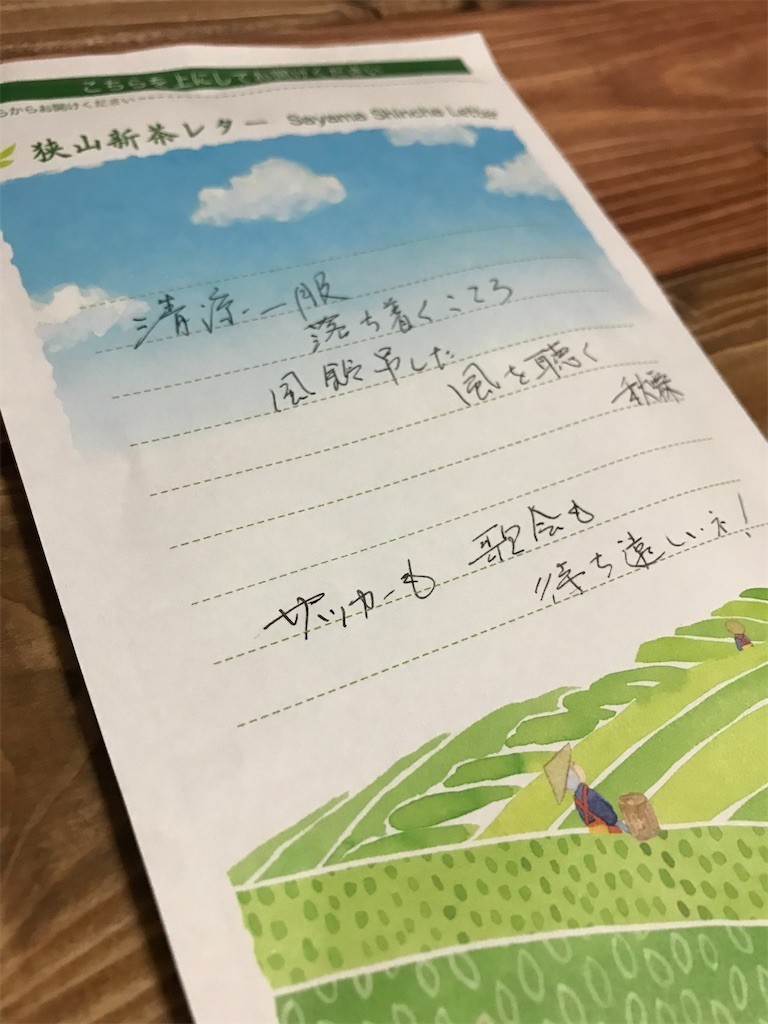 こちらを上にしてお開けください
らからお開けください
狭山新茶レター Sayama Shincha Letter
清涼一服
落ち着くこころ
風鈴吊した
風を聴く
秋栗
サッカーも
歌会も
待ち遠しいネ!